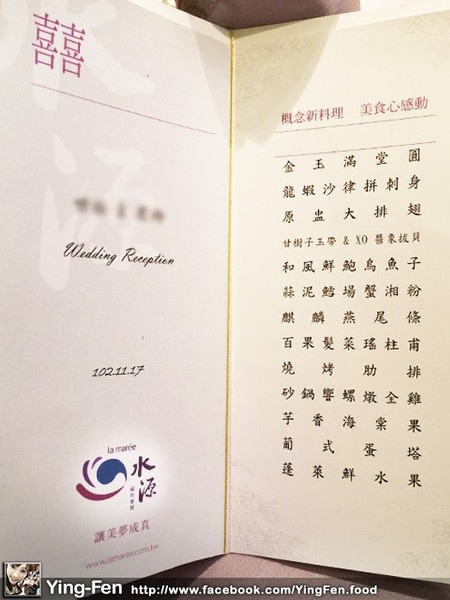 囍
水源
Wedding Reception
102.11.17
la marée
水源
讓美夢成真
www.lamarée.com.tw
概念新料理 美食心感動
金玉滿堂圓
龍蝦沙律拼刺身
原盅大排翅
甘樹子玉帶 & XO 醬象拔貝
和風鮮鮑烏魚子
蒜泥鱈場蟹湘粉
麒麟燕尾條
百果髮菜瑤柱甫
燒烤肋排
砂鍋響螺燉全雞
芋香海棠果
葡式蛋塔
蓬萊鮮水果
Ying-Fen http://www.facebook.com/YingFen.food